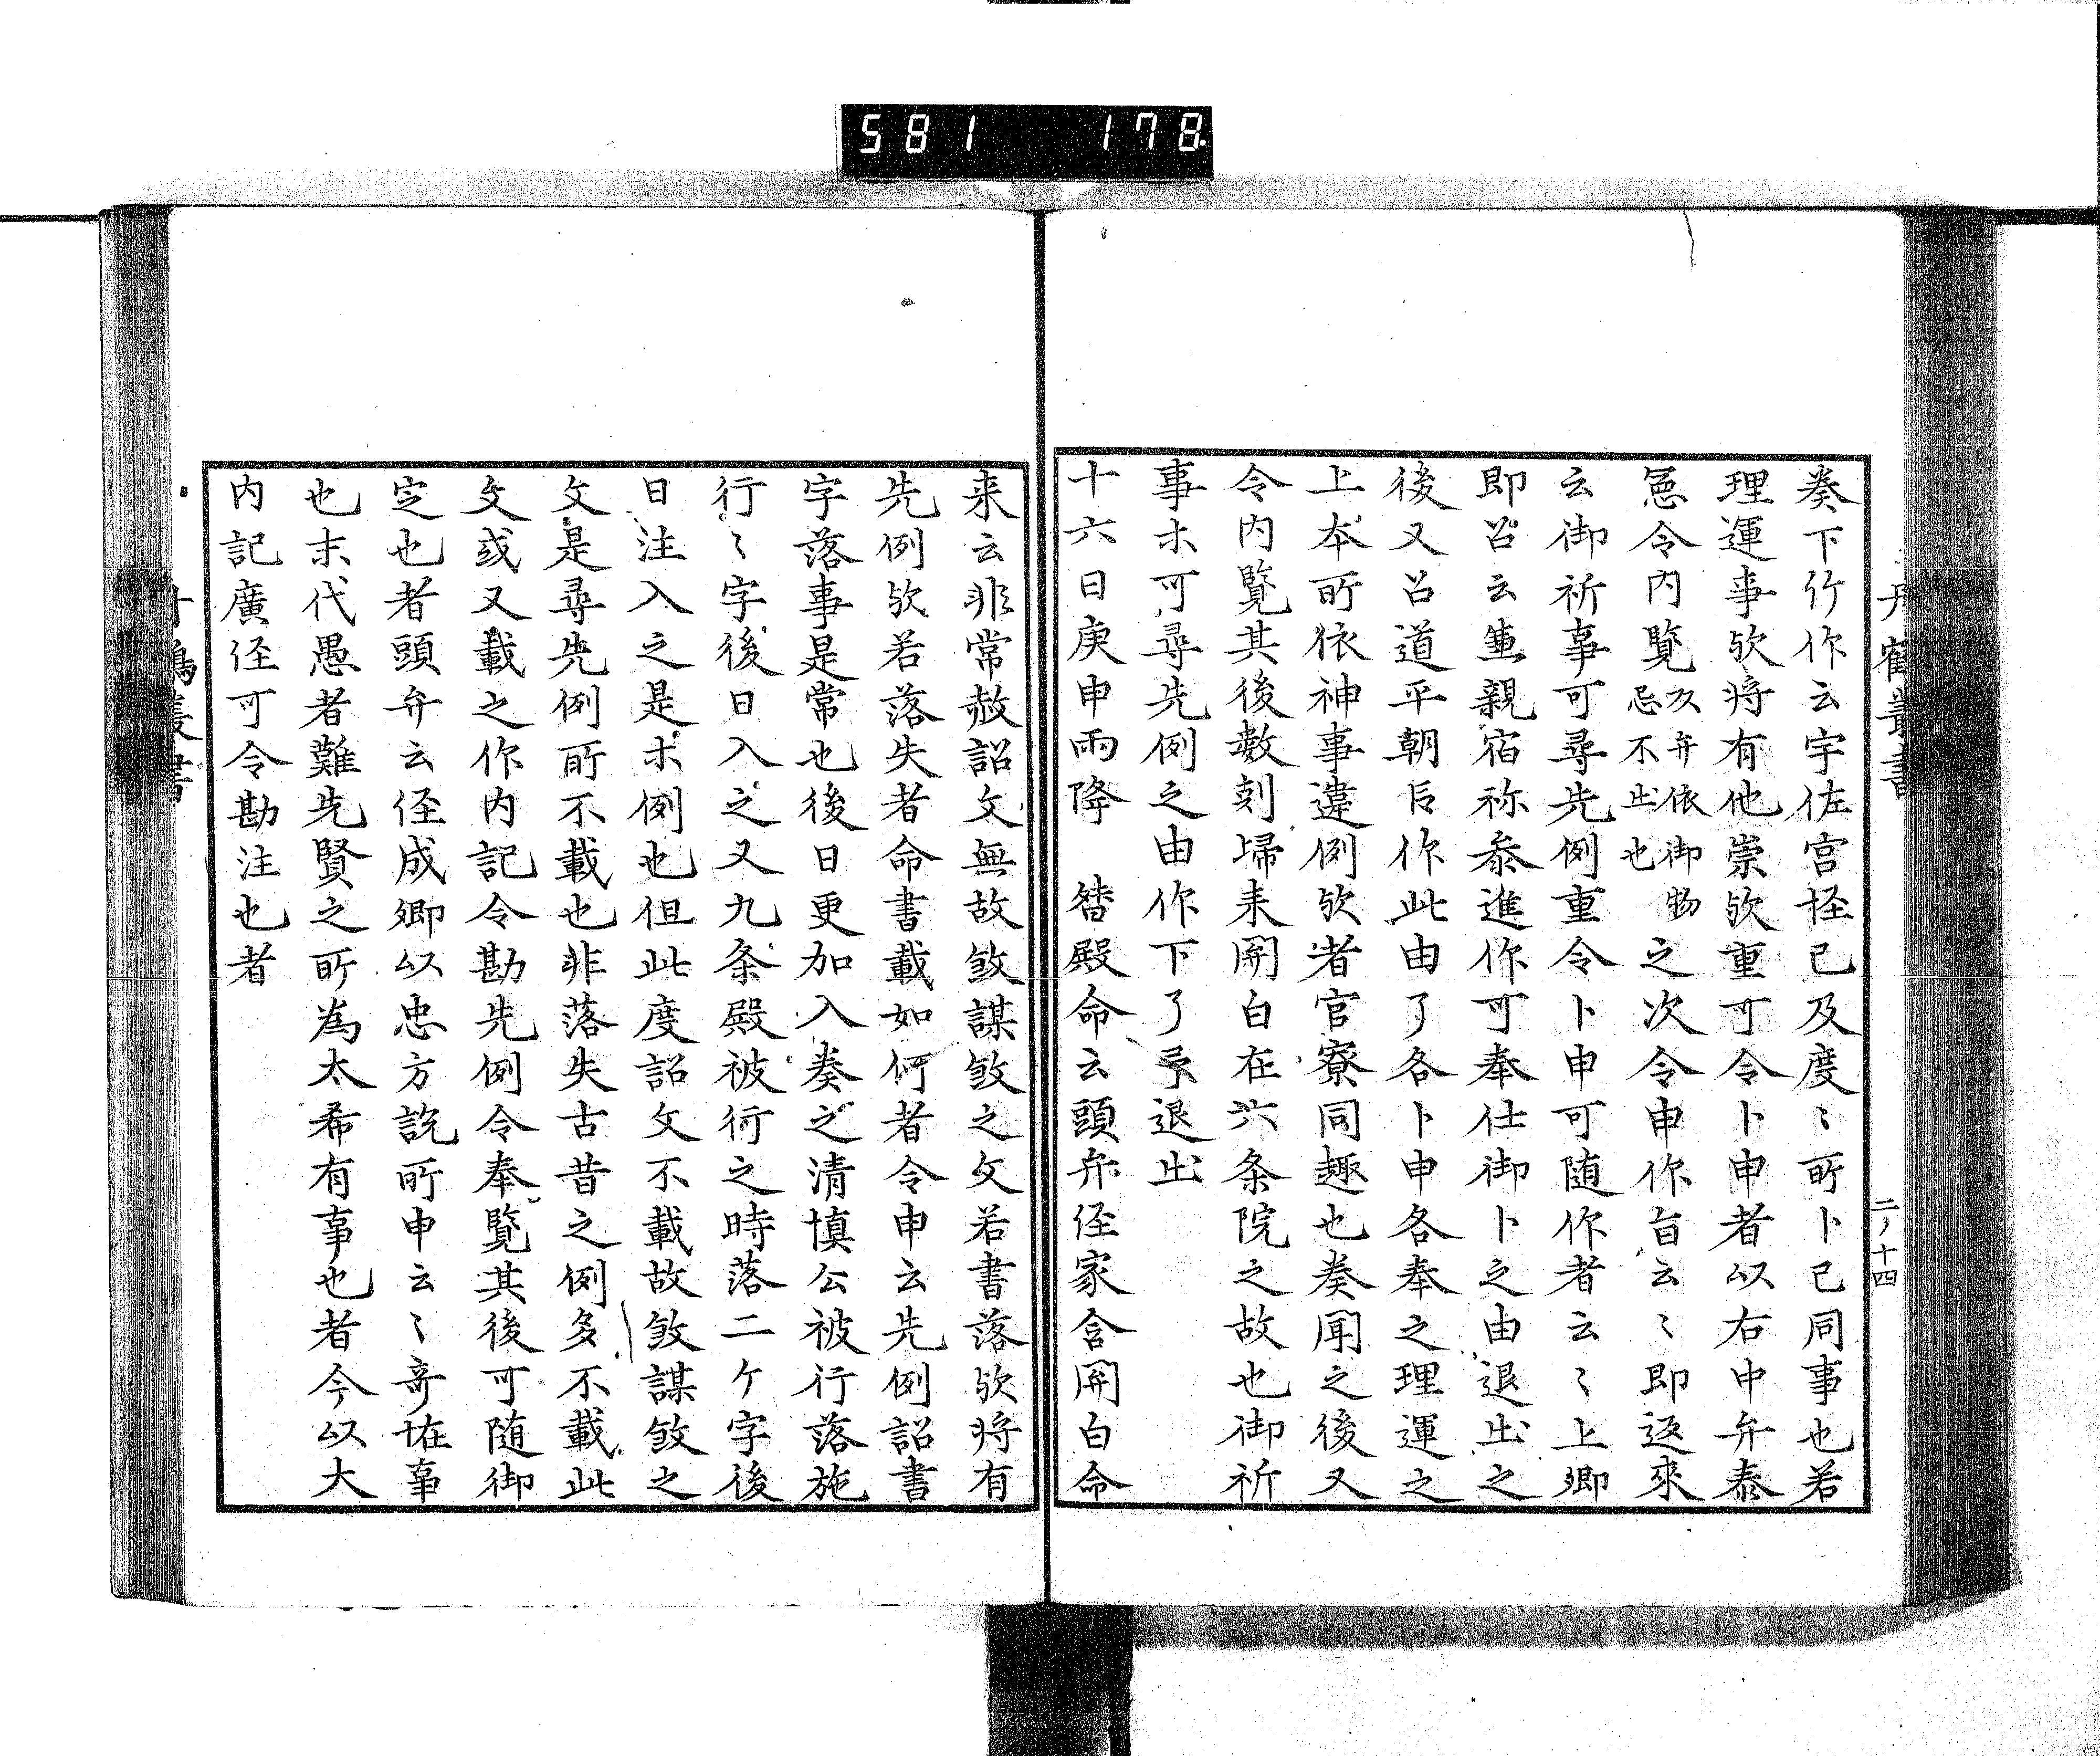 581 178
丹鶴叢書
二ノ十四
奏下行作云宇佐宮怪已及度〻所卜已同事也若
理運事欤将有他崇欤重可令卜申者以右中弁泰
憲令内覧及弁依御物忌不出也之次令申作旨云〻即返來
云御祈事可尋先例重令卜申可随作者云〻上卿
即召云兼親宿祢参進作可奉仕御卜之由退出之
後又召道平朝臣作此由了各卜申各奉之理運之
上本所依神事違例欤者官寮同趣也奏聞之後又
令内覧其後数剋帰来関白在六条院之故也御祈
事ホ可尋先例之由作下了予退出
十六日庚申雨降 督殿命云頭弁経家含関白命
来云非常赦詔文無故敘謀敘之文若書落欤将有
先例欤若落失者命書載如何者令申云先例詔書
字落事是常也後日更加入奏之清慎公被行落施
行〻字後日入之又九条殿被行之時落二ケ字後
日注入之是ホ例也但此度詔文不載故敘謀敘之
文是尋先例所不載也非落失古昔之例多不載此
文或又載之作内記令勘先例令奉覧其後可随御
定也者頭弁云経成卿以忠方説所申云〻奇恠事
也末代愚者難先賢之所為太希有事也者今以大
内記廣経可令勘注也者